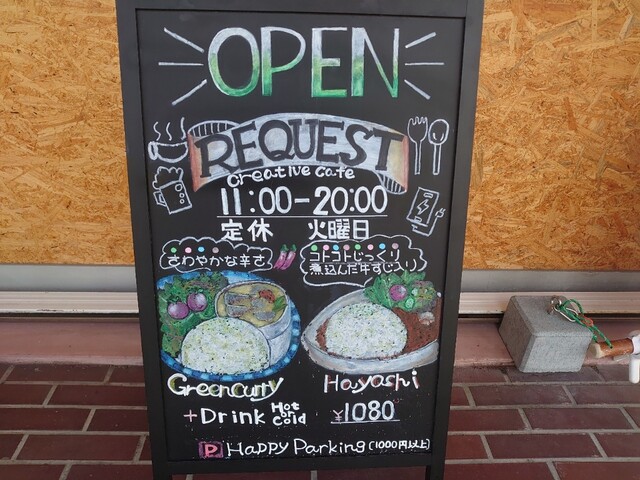 OPEN
REQUEST
creative cafe
11:00-20:00
定休 火曜日
さわやかな辛さ
コトコトじっくり
煮込んだ牛すじ入り
Greencurry
Hayashi
+Drink Hot or Cold
¥1080
P Happy Parking (1000円以上)